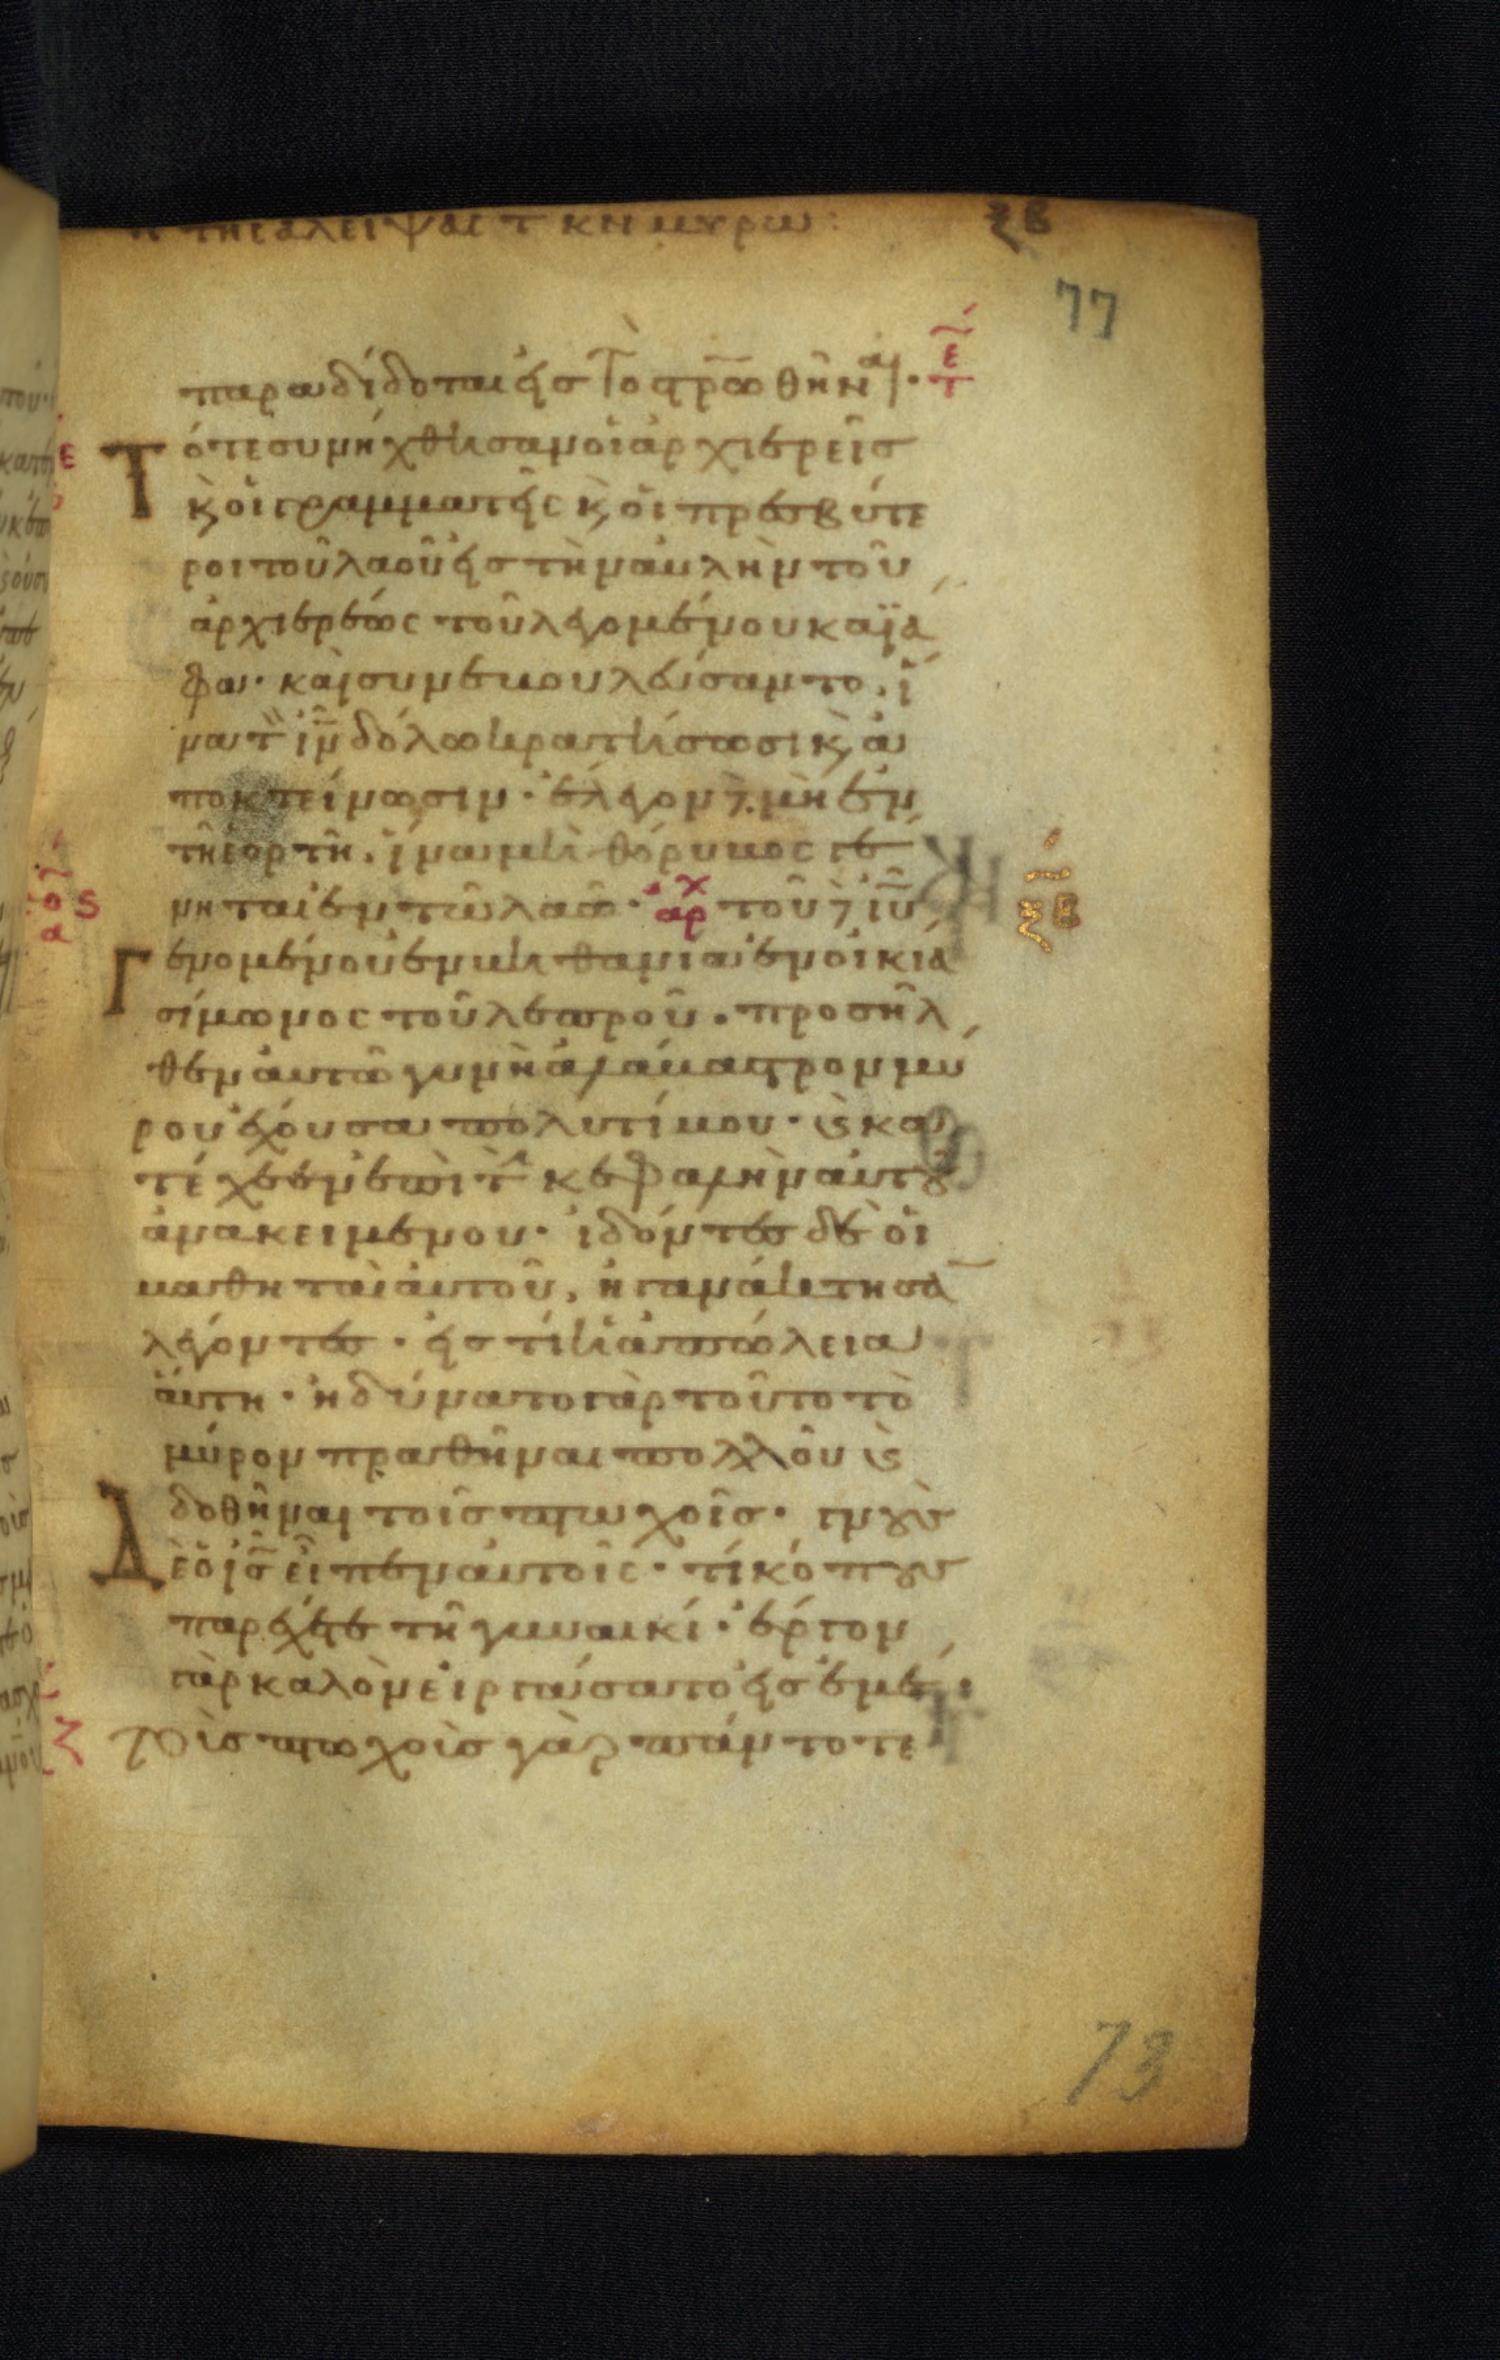 τῆς ἀλειψάσ τ κν μύρω: ξβ
77
παραδίδοται εἰς τὸ στρωθῆναι· τε
Τότε συνήχθησαν οἱ ἀρχιερεῖς
κ̀ οἱ γραμματεῖς κ̀ οἱ πρεσβύτε
ροι τοῦ λαοῦ εἰς τὴν αὐλὴν τοῦ
ἀρχιερέως τοῦ λεγομένου καϊά
φα· καὶ συνεβουλεύσαντο, ἵ
να τ̀ ιν̅ δόλω κρατήσωσι κ̀ ἀ
ποκτείνωσιν· ἔλεγον δ̀ μὴ ἐν
τῆ ἑορτῆ, ἵνα μὴ θόρυβος γέ
νηται ἐν τῶ λαῶ· ἀρχ τοῦ δ̀ ιυ̅
ξβ
ς
Γενομένου ἐν βηθανία ἐν οἰκία
σίμωνος τοῦ λεπροῦ. προσῆλ
θεν αὐτῶ γυνὴ ἀλάβαστρον μύ
ρου ἔχουσα πολυτίμου· κ̀ κα
τέχεεν ἐπὶ τ̀ κεφαλὴν αὐτοῦ
ἀνακειμένου· ἰδόντες δὲ οἱ
μαθηταὶ αὐτοῦ, ἠγανάκτησα̅
λέγοντες· εἰς τί ἡ ἀπώλεια
αὕτη· ἠδύνατο γὰρ τοῦτο τὸ
μύρον πραθῆναι πολλοῦ κ̀
δοθῆναι τοῖς πτωχοῖς· γνοὺς
Δὲ ὁ ις̅ εἶπεν αὐτοῖς· τί κόπους
παρέχετε τῆ γυναικί· ἔργον
γὰρ καλὸν εἰργάσατο εἰς ἐμέ:
ζ
Τοὺς πτωχοὺς γὰρ πάντοτε
73